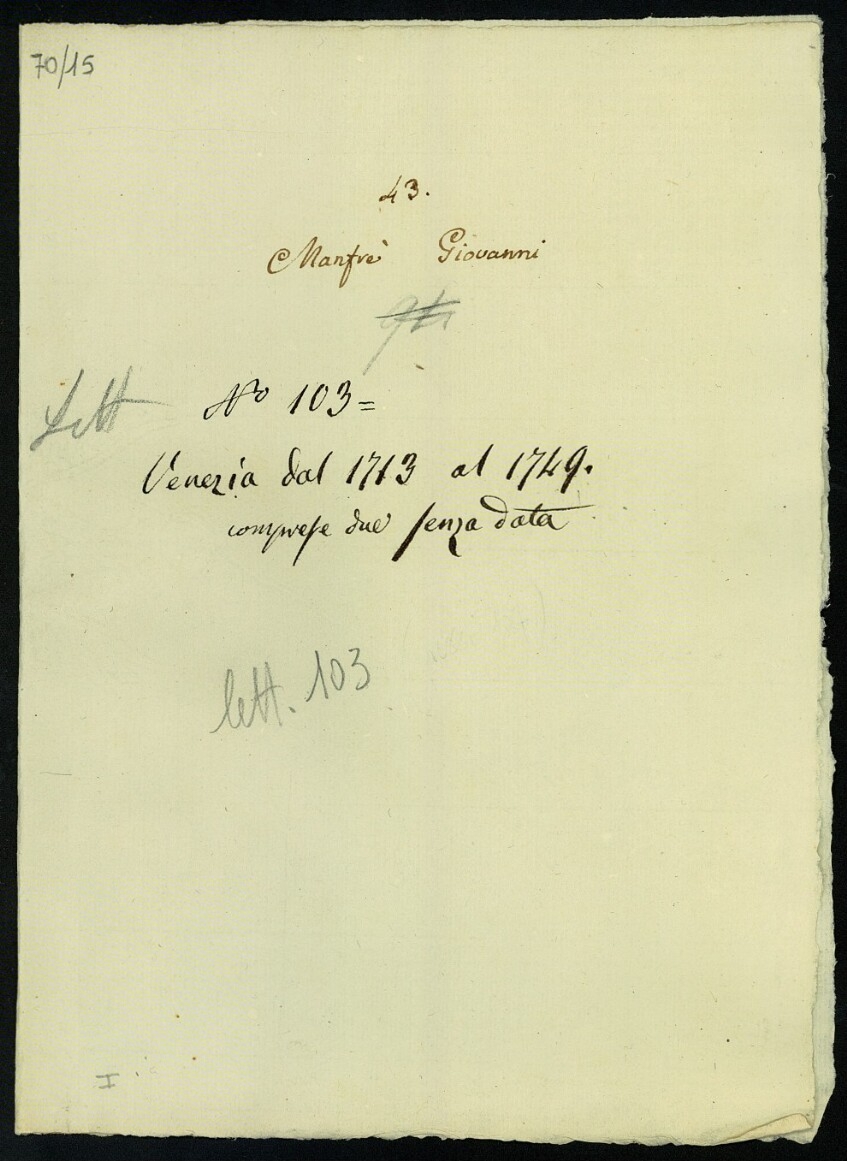 70/15
43.
Manfrè Giovanni
Lett N.o 103=
Venezia dal 1713 al 1749.
comprese due senza data
lett. 103
I